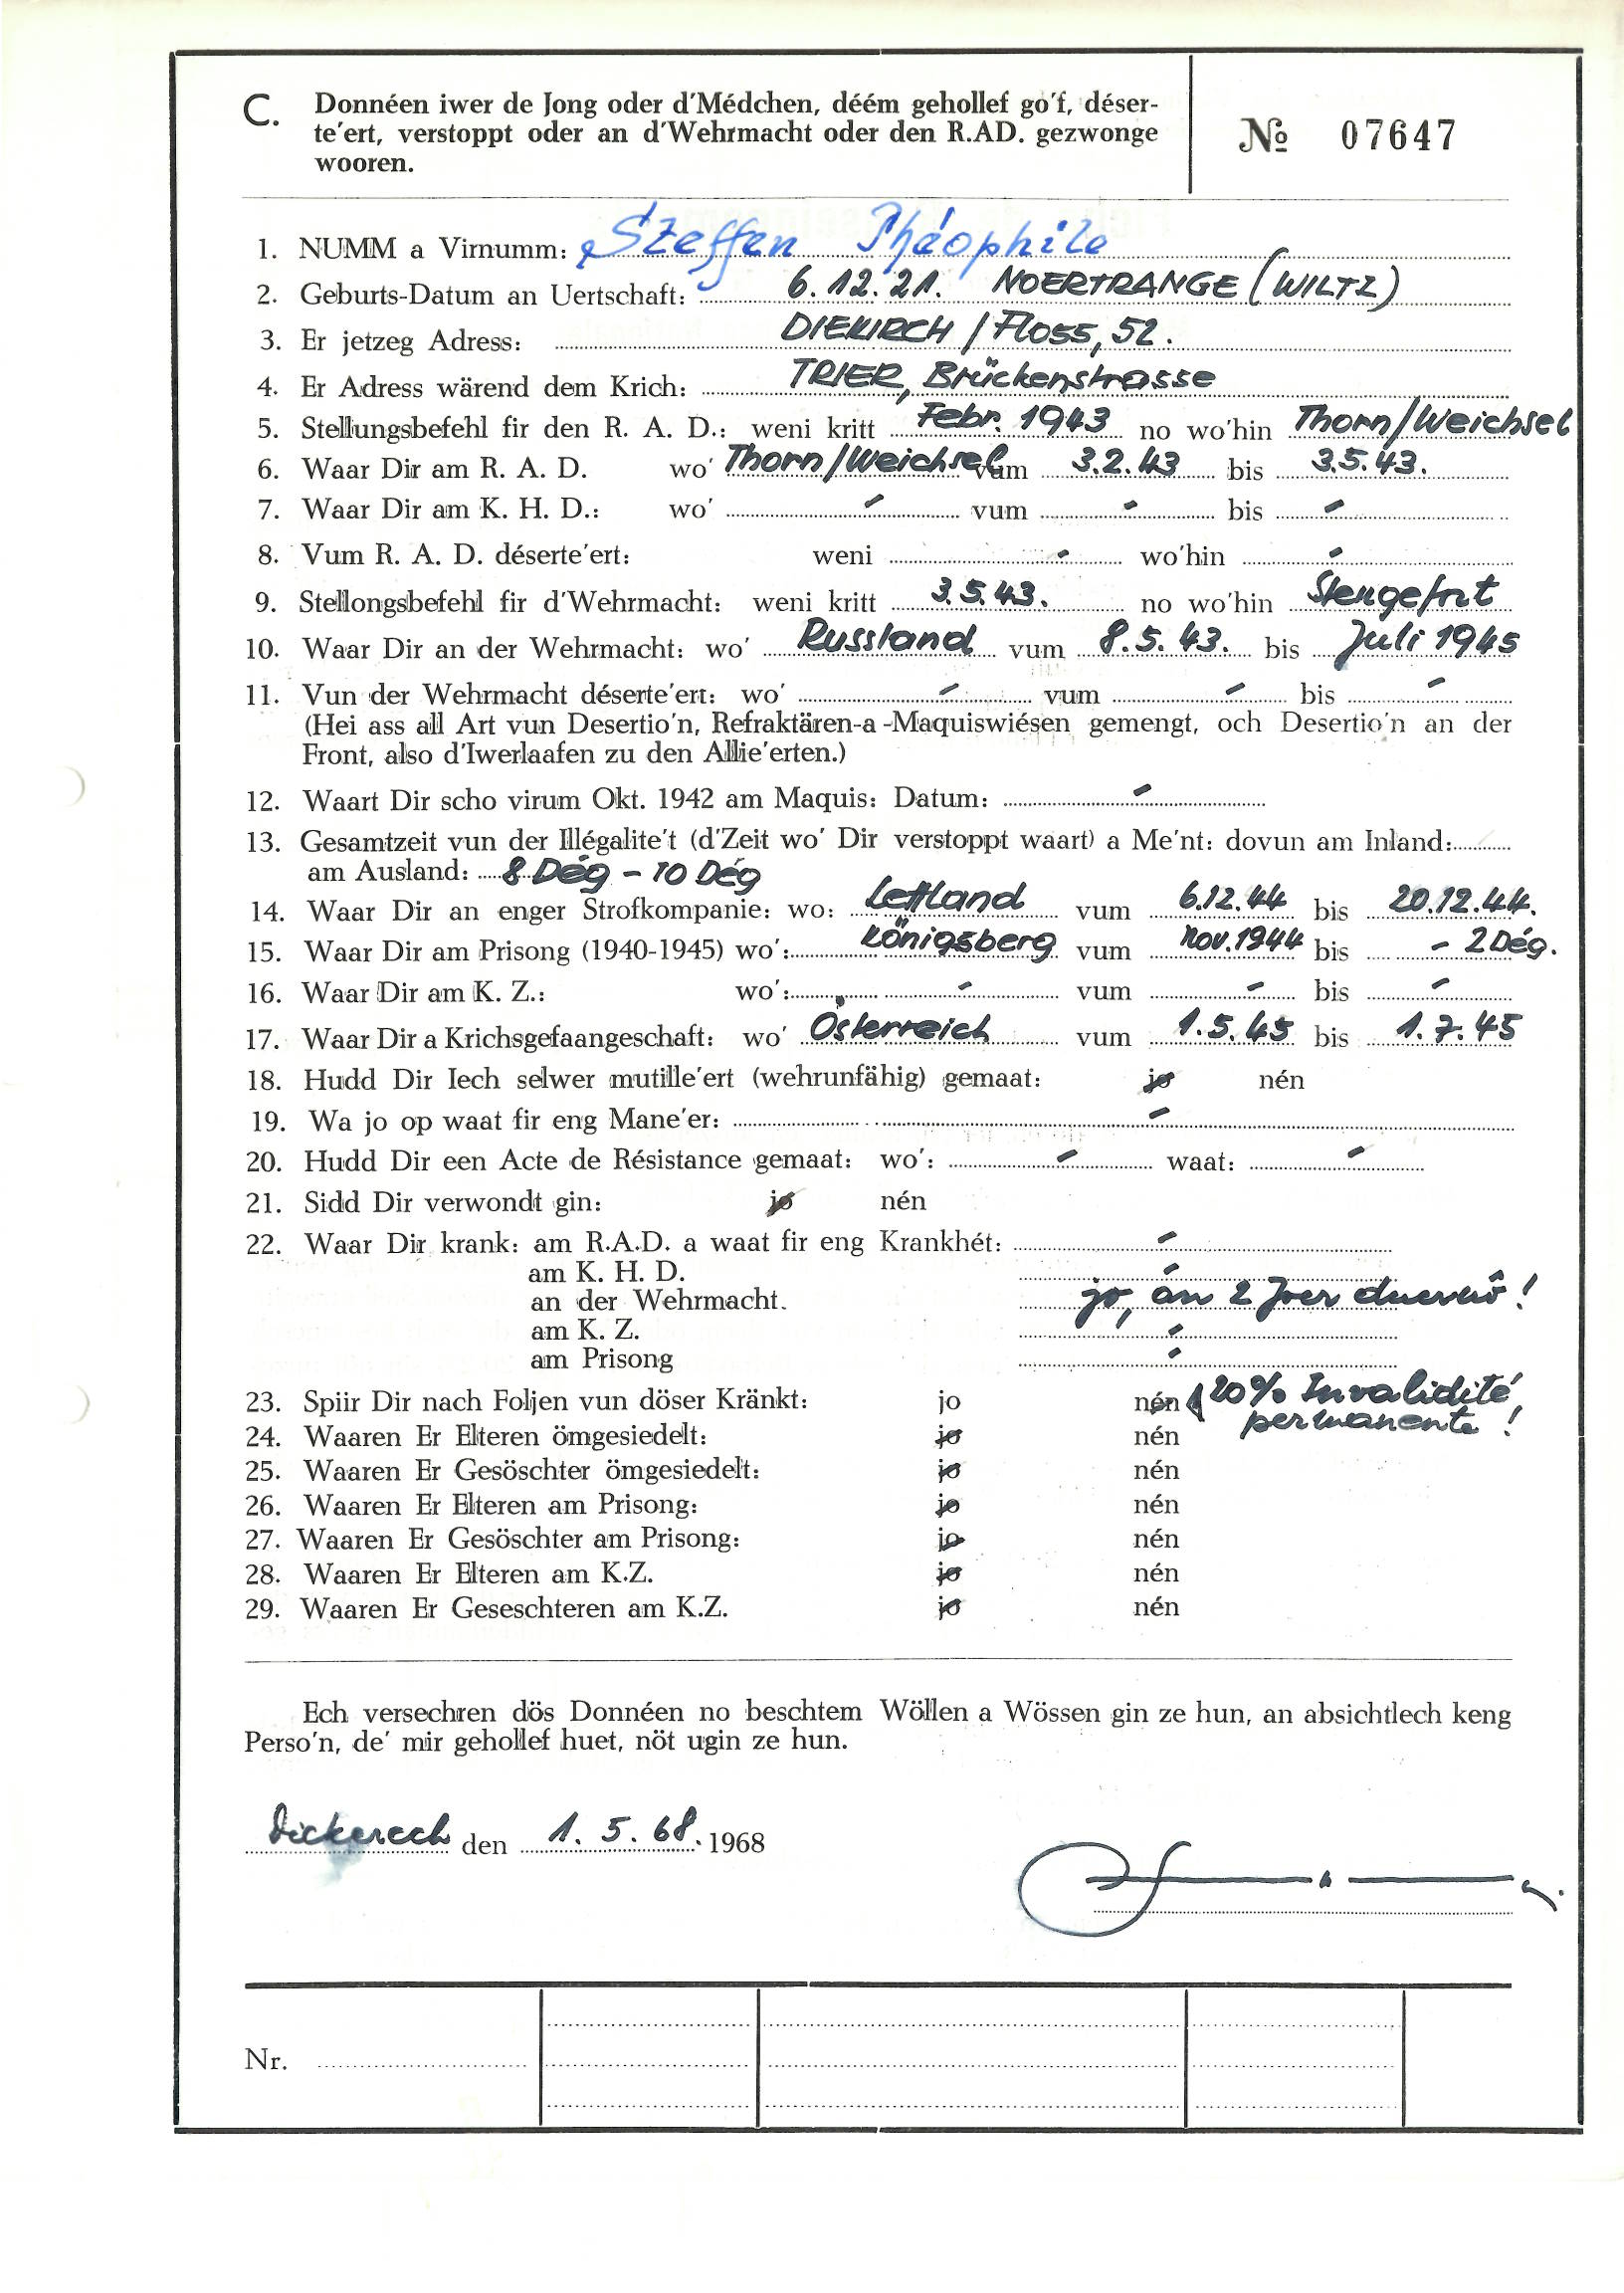 C. Donnéen iwer de Jong oder d'Médchen, déém gehollef go'f, déser-
te'ert, verstoppt oder an d'Wehrmacht oder den R.AD. gezwonge
wooren.
№ 07647
1. NUMM a Virnumm: Steffen Théophile
2. Geburts-Datum an Uertschaft: 6.12.21. NOERTRANGE (WILTZ)
3. Er jetzeg Adress: DIEKIRCH / Floss, 52.
4. Er Adress wärend dem Krich: TRIER, Brückenstrasse
5. Stellungsbefehl fir den R. A. D.: weni kritt Febr. 1943 no wo'hin Thorn/Weichsel
6. Waar Dir am R. A. D. wo' Thorn/Weichsel vum 3.2.43 bis 3.5.43.
7. Waar Dir am K. H. D.: wo' - vum - bis -
8. Vum R. A. D. déserte'ert: weni - wo'hin -
9. Stellongsbefehl fir d'Wehrmacht: weni kritt 3.5.43. no wo'hin
10. Waar Dir an der Wehrmacht: wo' Russland vum 8.5.43. bis Juli 1945
11. Vun der Wehrmacht déserte'ert: wo' - vum - bis -
(Hei ass all Art vun Desertio'n, Refraktären-a-Maquiswiésen gemengt, och Desertio'n an der
Front, also d'Iwerlaafen zu den Allie'erten.)
12. Waart Dir scho virum Okt. 1942 am Maquis: Datum: -
13. Gesamtzeit vun der Illégalite't (d'Zeit wo' Dir verstoppt waart) a Me'nt: dovun am Inland:
am Ausland: 8 Dég - 10 Dég
14. Waar Dir an enger Strofkompanie: wo: Lettland vum 6.12.44 bis 20.12.44.
15. Waar Dir am Prisong (1940-1945) wo': Königsberg vum Nov. 1944 bis - 2 Dég.
16. Waar Dir am K. Z.: wo': - vum - bis -
17. Waar Dir a Krichsgefaangeschaft: wo' Österreich vum 1.5.45 bis 1.7.45
18. Hudd Dir Iech selwer mutille'ert (wehrunfähig) gemaat: jo nén
19. Wa jo op waat fir eng Mane'er: -
20. Hudd Dir een Acte de Résistance gemaat: wo': - waat: -
21. Sidd Dir verwondt gin: jo nén
22. Waar Dir krank: am R.A.D. a waat fir eng Krankhét: -
am K. H. D. -
an der Wehrmacht. jo, an 2 Joer
am K. Z. -
am Prisong -
23. Spiir Dir nach Foljen vun döser Kränkt: jo nén 20% Invalidité
permanente !
24. Waaren Er Elteren ömgesiedelt: jo nén
25. Waaren Er Gesöschter ömgesiedelt: jo nén
26. Waaren Er Elteren am Prisong: jo nén
27. Waaren Er Gesöschter am Prisong: jo nén
28. Waaren Er Elteren am K.Z. jo nén
29. Waaren Er Geseschteren am K.Z. jo nén
Ech versechren dös Donnéen no beschtem Wöllen a Wössen gin ze hun, an absichtlech keng
Perso'n, de' mir gehollef huet, nöt ugin ze hun.
Dickerech den 1. 5. 68. 1968
Nr.